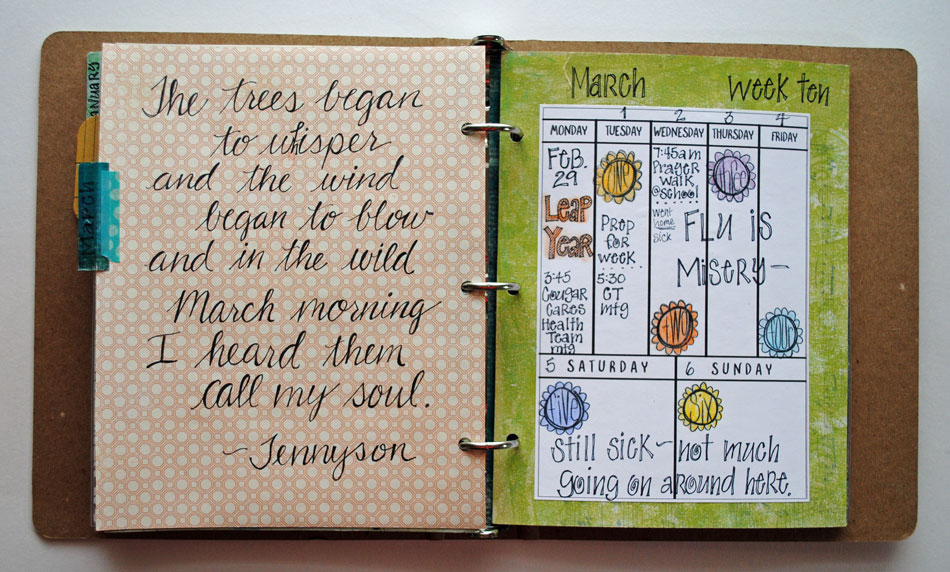 ANUARY
March
The trees began
to whisper
and the wind
began to blow
and in the wild
March morning
I heard them
call my soul.
~Tennyson
March Week ten
1 2 3 4
MONDAY TUESDAY WEDNESDAY THURSDAY FRIDAY
Feb.
29
Leap
Year
3:45
Cougar
Cares
Health
Team
mtg
one
Prep
for
week
5:30
CT
mtg
7:45am
Prayer
walk
@school
went
home
sick
two
three
Flu is
Misery—
four
5 SATURDAY 6 SUNDAY
five six
still sick—not much
going on around here.